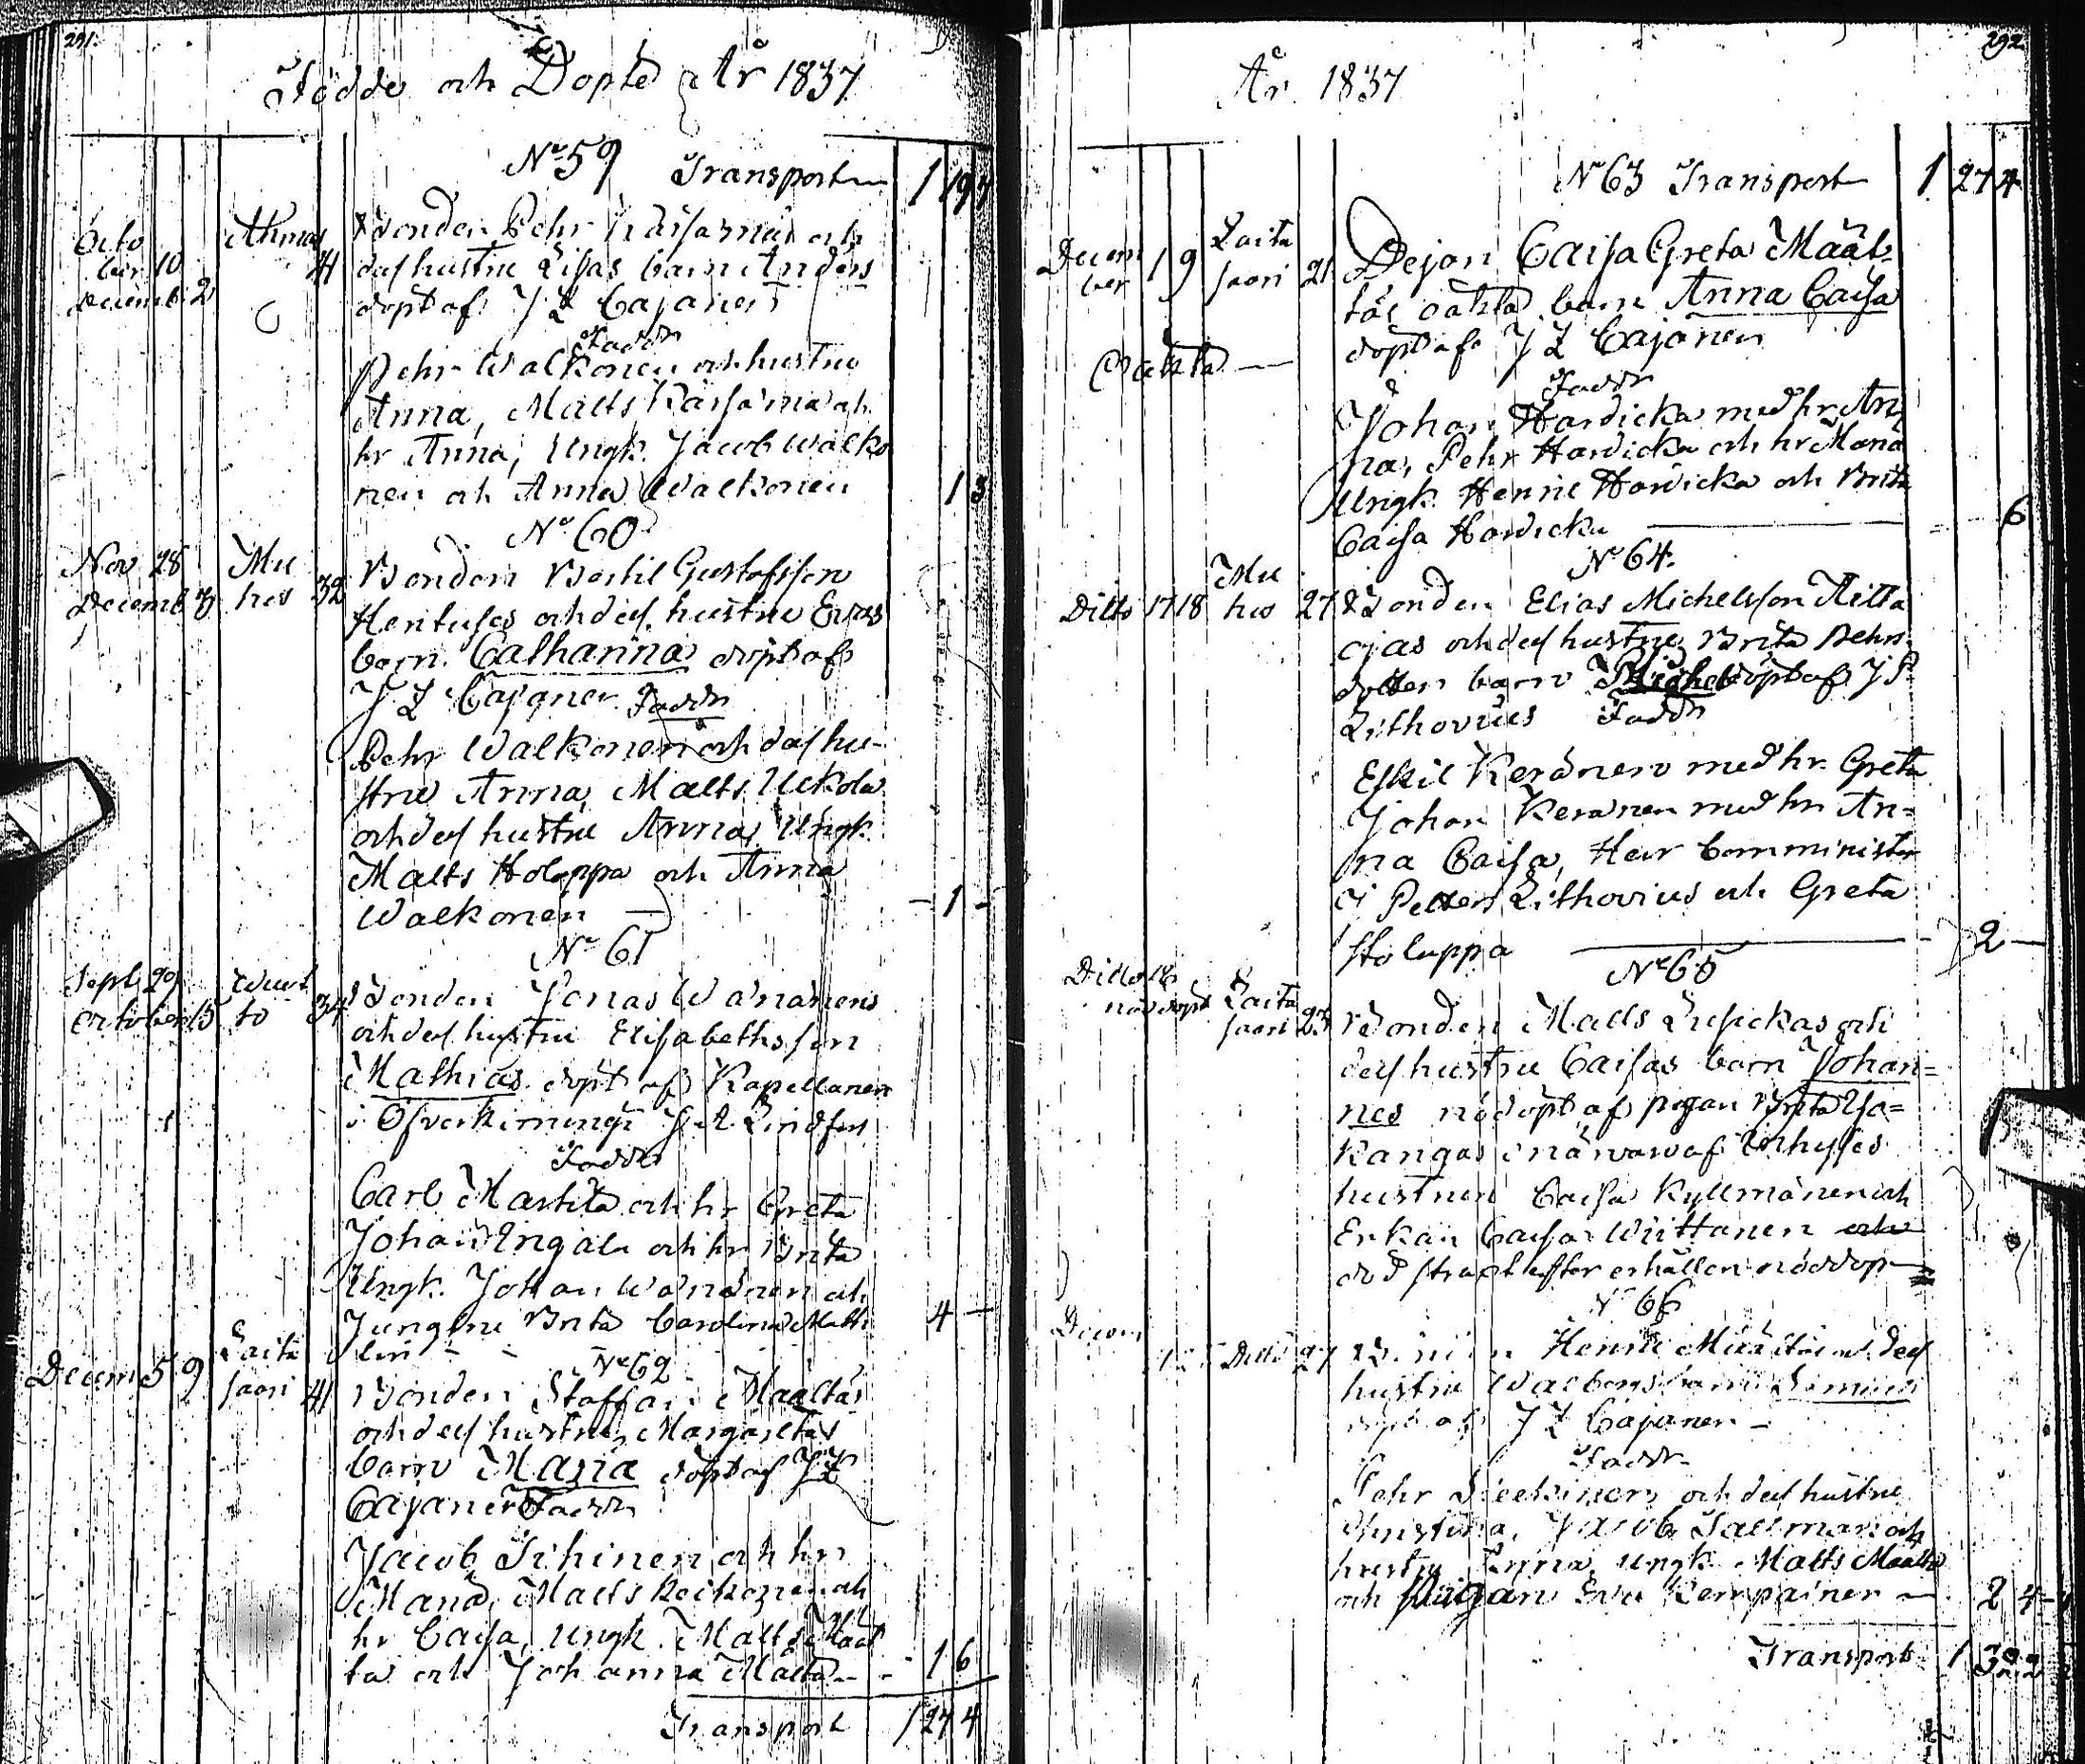 291.
Födde och Döpte År 1837
No 59 Transport 1 19 4
Octo
ber 10
Decemb 2
Ahmas
41
Bonden Pehr och
dess hustru Lisas barn Anders
döpt af J Z Cajaner
Faddr
Pehr Walkonen och hustru
Anna, Matts och
hr Anna, Ungk. Jacob Walko
nen och Anna Walkonen 1 3
No 60
Nov 28
Decemb 3
Mu
hos 32
Bonden Bertil Gustafsson
Hentuses och dess hustru Evas
barn Catharina döpt af
J Z Cajaner Faddr
Pehr Walkonen och dess hu-
stru Anna, Matts Ukkola
och dess hustru Anna, Ungk.
Matts Holappa och Anna
Walkonen - 1 -
No 61
Sept 29
October 15
to 34
Bonden Jonas Wänänens
och dess hustru Elisabeths son
Mathias döpt af Kapellanen
i Öfverkiminge J. A. Lindfors
Faddr
Carl Marttila och hr Greta
Johan och hr Brita
Ungk. Johan Wänänen och
Jungfru Brita Carolina
lin 4 -
No 62
Decem 5 9
Laita
saari 41
Bonden Staffan Määttäs
och dess hustru Margaretas
barn Maria döpt af J Z
Cajaner Faddr
Jacob Tihinen och hr
Mana, Matts och
hr Caisa, Ungk. Matts Määt
tä och Johanna Määttä - 1 6
Transport 1 27 4
292
År 1837
No 63 Transport 1 27 4
Decem
ber 1 9
Laita
saari 21
Pigan Caisa Greta Määt-
täs oäkta barn Anna Caisa
döpt af J Z Cajanen
Oäkta —
Faddr
Johan Hardicka med hr An
na, Pehr Hardicka och hr Mana
Ungk. Henric Hardicka och Brita
Caisa Hardicka — 6
No 64.
Ditto 17 18
Mu
hos 27
Bonden Elias Michelsson
ojas och dess hustru Brita Pehrs
dotters barn Michel döpt af J P
Lithovius Faddr
Eskil Keränen med hr Greta
Johan Keränen med hr An=
na Caisa, Herr Comminister
J Petter Lithovius och Greta
Holappa — 2 —
No 65
Ditto 18
nöddöpt
Laita
saari 23
Bonden Matts och
dess hustru Caisas barn Johan=
nes nöddöpt af pigan Brita Ylä=
kangas i närvaro af Inhyses
hustrun Caisa Kyllmänen och
Enkan Caisa Wiittanen och
död strax efter erhållen nöddop
No 66
Decem
Ditto 27
Bonden Henric Määttä och dess
hustru Walborgs barn Simeon
döpt af J Z Cajaner -
Faddr
Pehr och dess hustru
Christina, Jacob Tallman och
hustru Anna, Ungk. Matts Määttä
och Pigan Eva Kempainen — 2 4
Transport 1